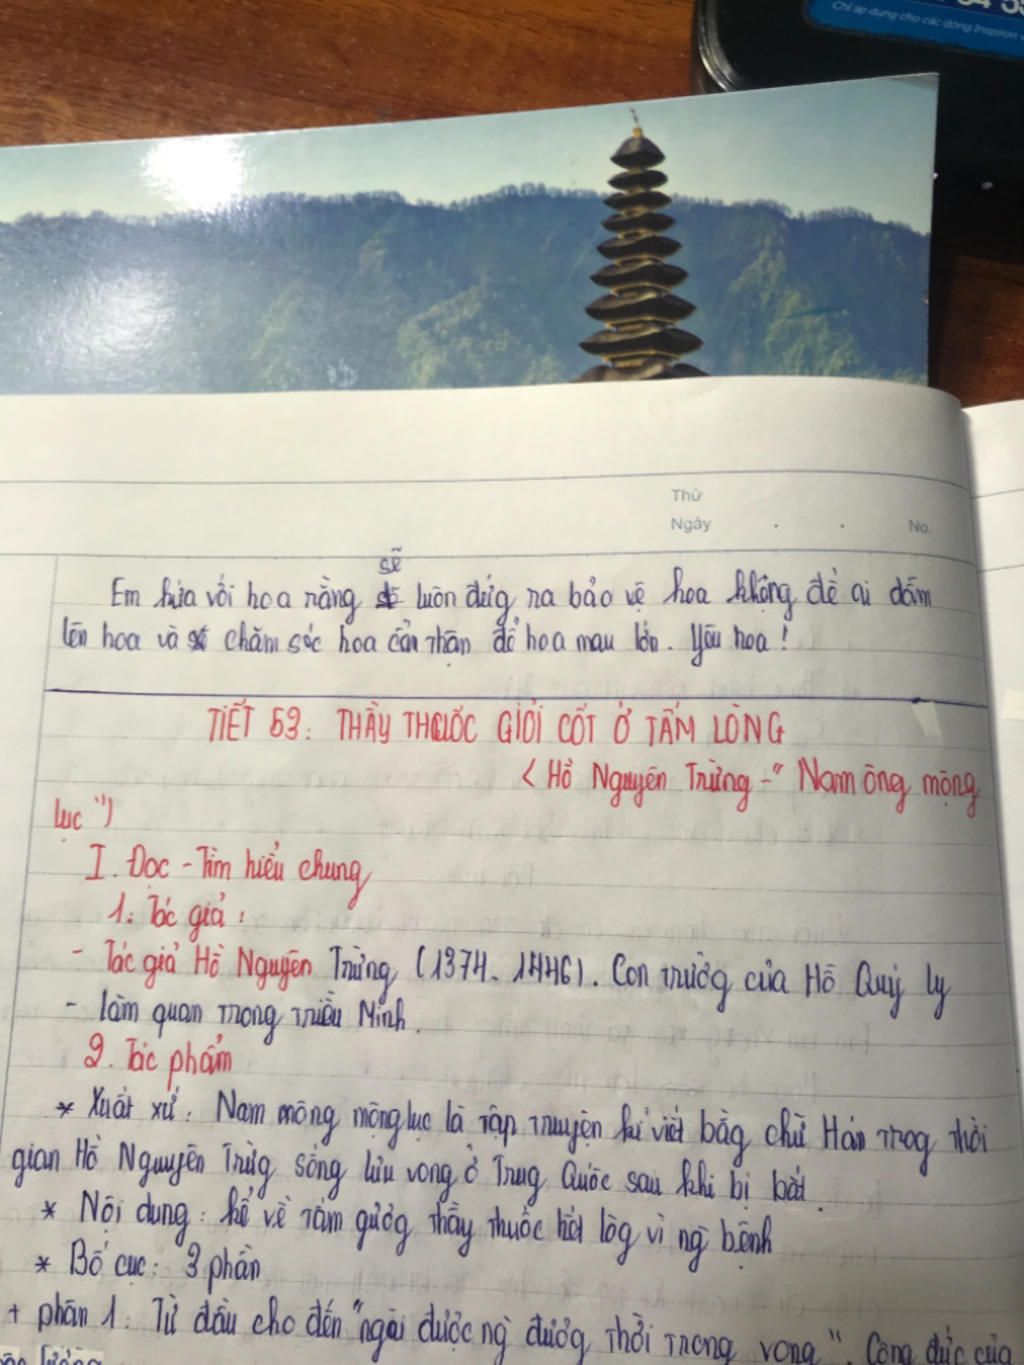 Chỉ áp dụng cho các dòng Inspiron
Thứ
Ngày . . No.
sẽ
Em hứa với hoa rằng luôn đứg ra bảo vệ hoa không để ai dẫm
lên hoa và chăm sóc hoa cẩn thận để hoa mau lớn. Yêu hoa!
TIẾT 59: THẦY THUỐC GIỎI CỐT Ở TẤM LÒNG
< Hồ Nguyên Trừng - " Nam ông mộng
lục ")
I. Đọc - Tìm hiểu chung
1. Tác giả :
- Tác giả Hồ Nguyên Trừng (1374 - 1446). Con trưởg của Hồ Quý ly
- làm quan trong triều Minh.
2. Tác phẩm
* Xuất xứ: Nam mông mộng lục là tập truyện kí viết bằg chữ Hán trog thời
gian Hồ Nguyên Trừg sống lưu vong ở Trug Quốc sau khi bị bắt.
* Nội dung: kể về tấm gươg thầy thuốc hết lòg vì ng bệnh
* Bố cục: 3 phần
+ phần 1: Từ đầu cho đến "ngài được ng đươg thời trong vọng". Công đức của